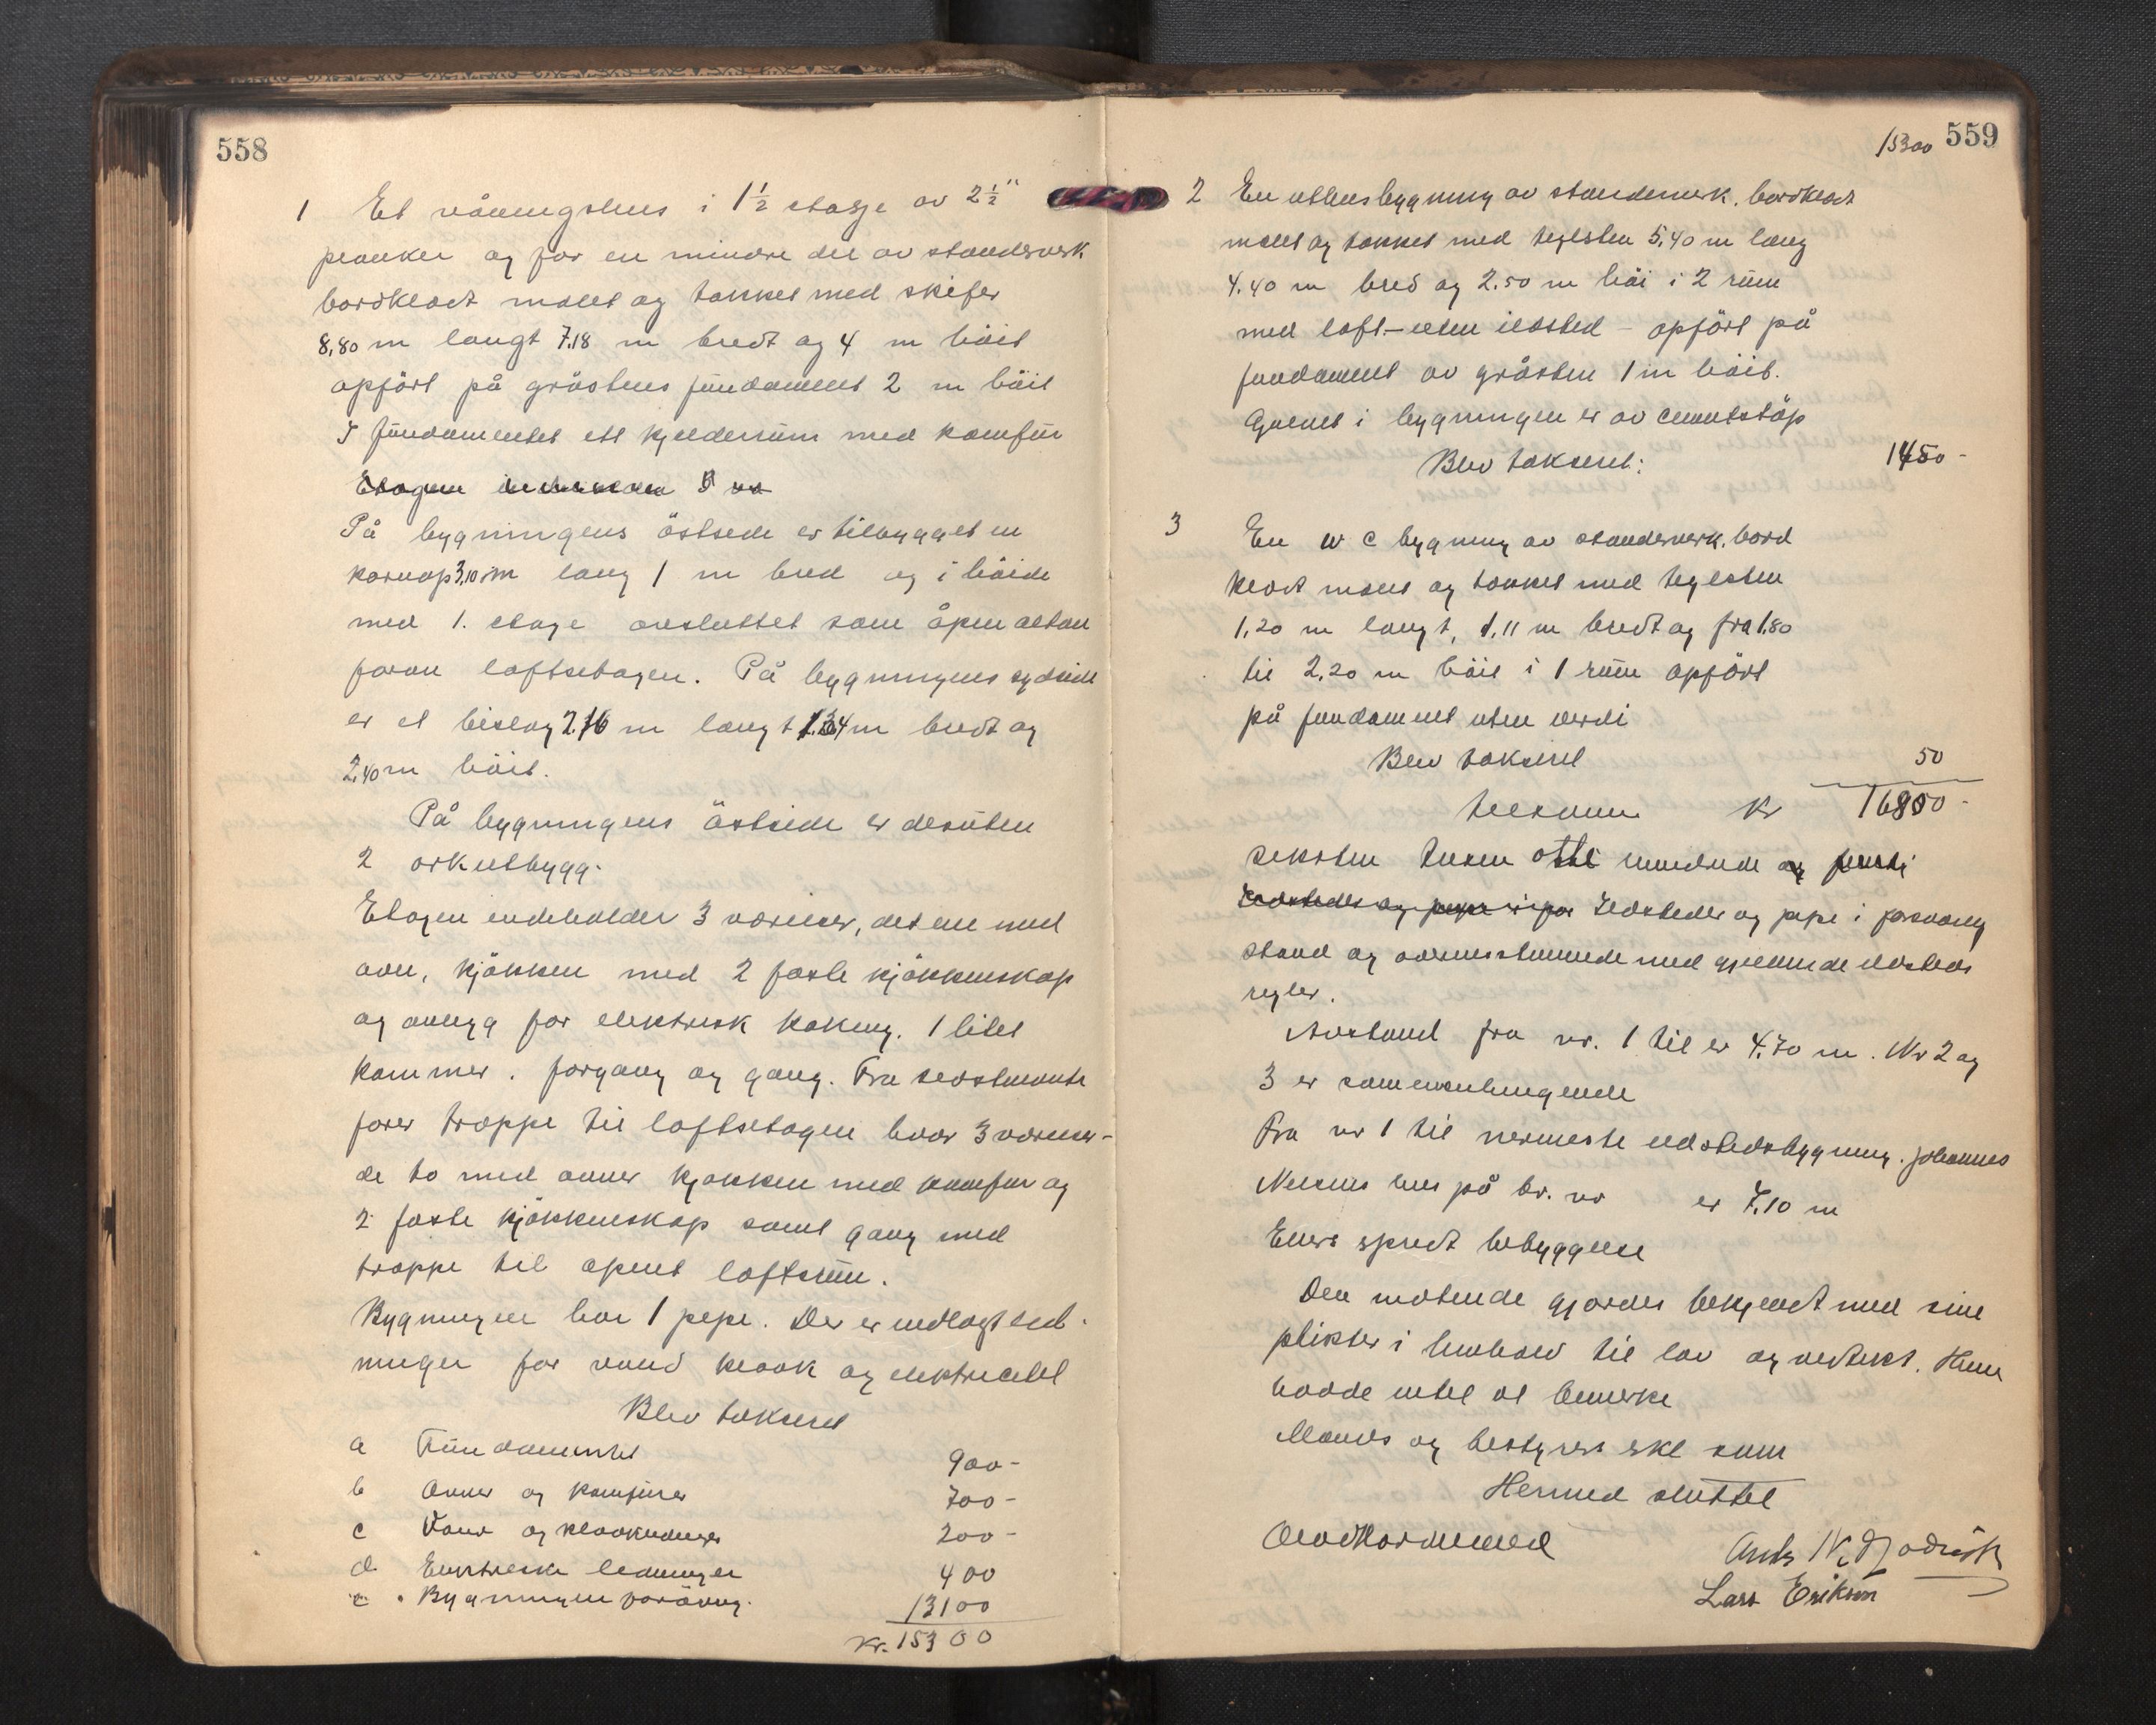 558
1 Et våningshus i 1 1/2 etasje av 2 1/2"
planker og for en mindre del av standerverk
bordklædt malet og tækket med skifer
8,80 m langt 7.18 m bredt og 4 m höit
opfört på gråstens fundament 2 m höit
I fundamentet ett kjelderrum med komfur
Etagen indeholder 3 væ
På bygningens östside er tilbygget en
karnap 3,10 m lang 1 m bred og i höide
med 1. etage avsluttet som åpen altan
foran loftsetagen. På bygningens sydside
er et bislag 2.16 m langt 1.34 m bredt og
2,40 m höit.
På bygningens östside er desuten
2 arkutbygg.
Etagen indeholder 3 værelser, det ene med
ovn, kjökken med 2 faste kjökkenskap
og anlegg for elektrisk koking. 1 litet
kammer. forgang og gang. Fra sidstnevnte
förer trappe til loftsetagen hvor 3 værelser-
de to med ovner kjökken med komfur og
2 faste kjökkenskap samt gang med
trappe til åpent loftsrum.
Bygningen har 1 pipe. Der er indlagt led-
ninger for vand kloak og elektricitet
Blev taksert
a Fundamentet 900-
b Ovner og komfurer 700-
c Vand og kloakledninger 200-
d Elektriske ledninger 400
e. Bygningen forövrig. 13100
kr. 15300
15300 559
2 En uthusbygning av standerverk. bordklædt
malet og tækket med teglsten 5,40 m lang
4.40 m bred og 2.50 m höi i 2 rum
med loft - uten ildsted - opfört på
fundament av gråsten 1 m höit.
Gulvet i bygningen er av cementstöp
Blev taksert: 1450-
3 En W C bygning av standerverk. bord
klædt malet og tækket med teglsten
1,20 m langt, 1,11 m bredt og fra 1.80
til 2,20 m höit i 1 rum opfört
på fundament uten verdi
Blev taksert 50
tilsammen kr 16800-
seksten tusen otte hundrede
Ildsteder og pipe i for Ildsteder og pipe i forsvarlig
stand og overensstemmende med gjeldende ildsteds
regler.
Avstand fra nr. 1 til er 4.70 m. Nr 2 og
3 er sammenhengende
Fra nr 1 til nermeste ildstedsbygning. Johannes
Nilsens hus på br. nr er 7,10 m
Ellers spredt bebyggelse
Den mötende gjordes bekjendt med sine
plikter i henhold til lov og vedtekt. Hun
hadde intet at bemerke
Mandes og bestyres ikl. sum
Hermed sluttet
Lars Erikson